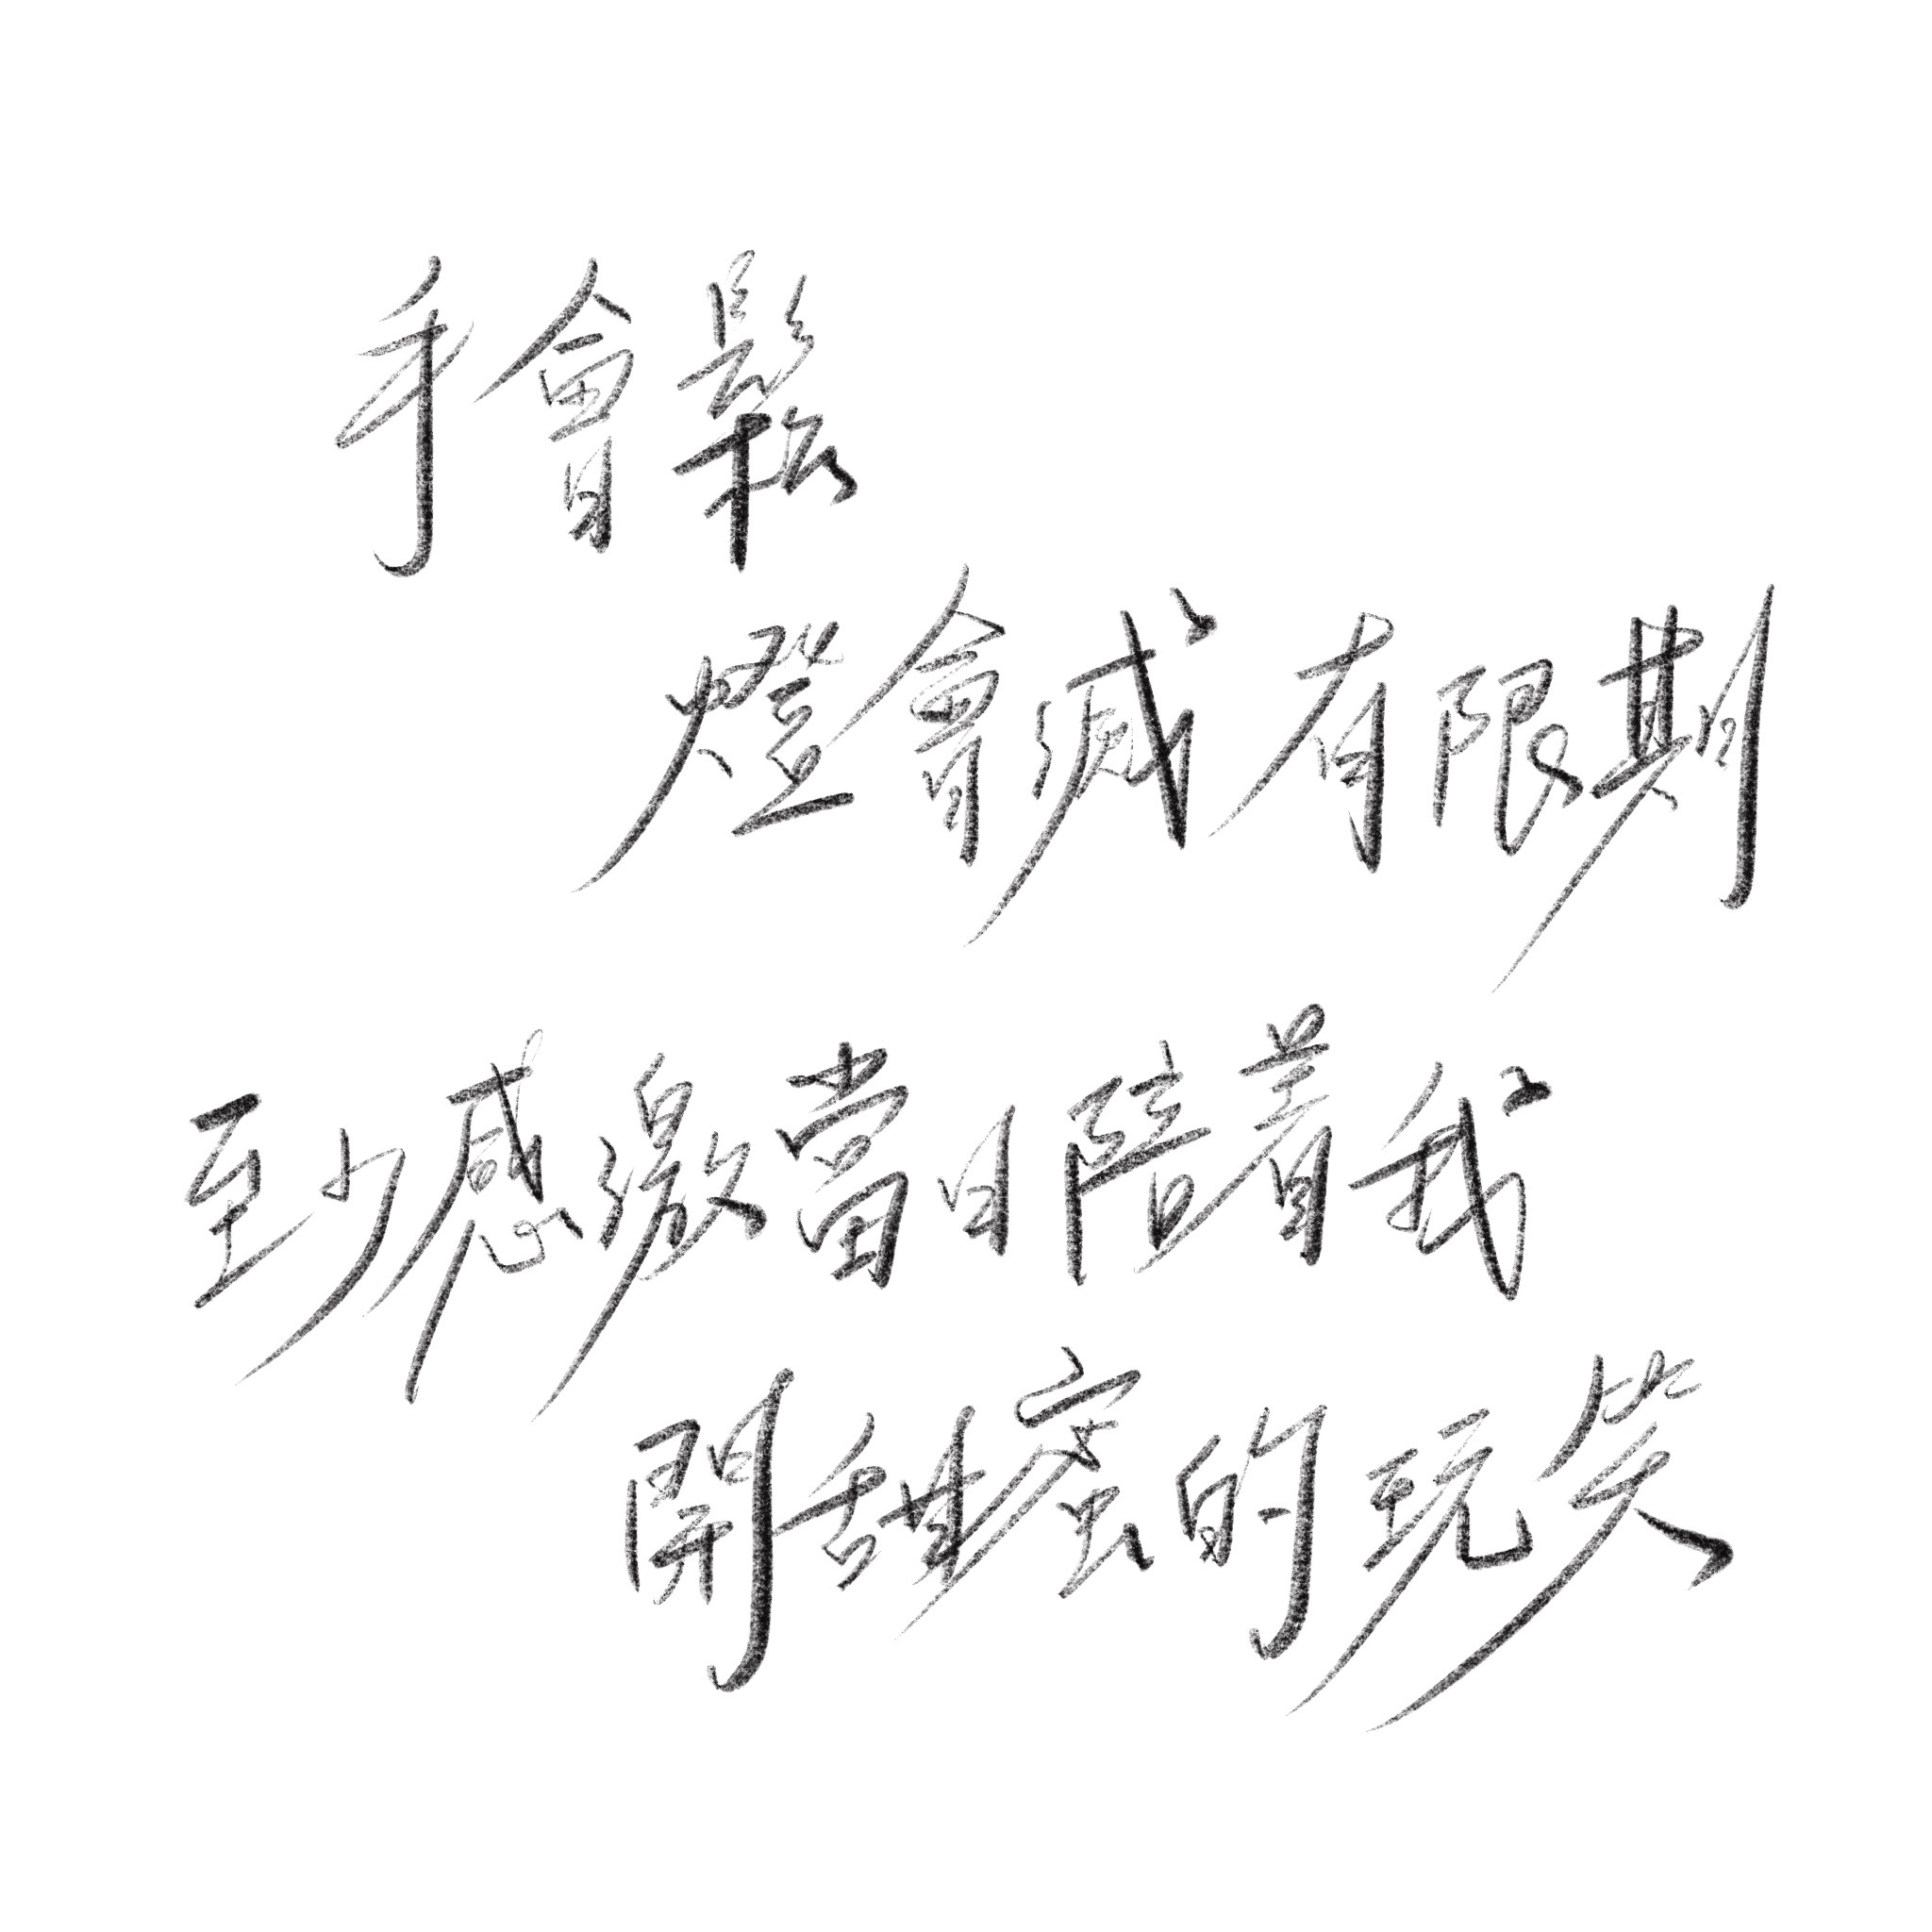 手會鬆
燈會滅有限期
至少感激當日陪着我
開甜蜜的玩笑